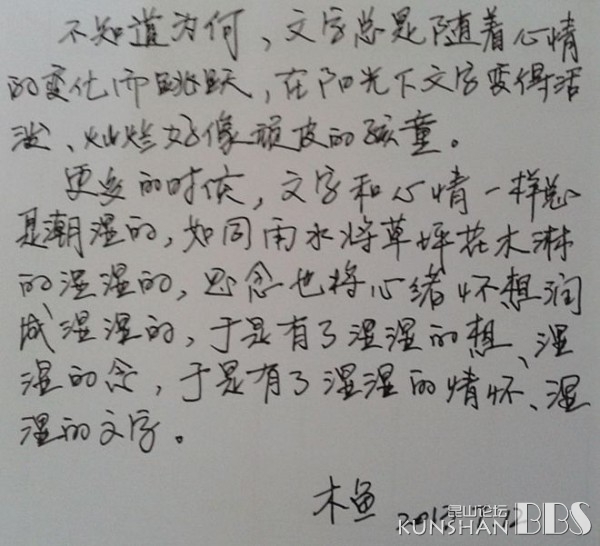 不知道为何，文字总是随着心情
的变化而跳跃，在阳光下文字变得活
泼、灿烂好像顽皮的孩童。
更多的时候，文字和心情一样总
是潮湿的，如同雨水将草坪花木淋
的湿湿的，思念也将心绪怀想润
成湿湿的，于是有了湿湿的想、湿
湿的念，于是有了湿湿的情怀、湿
湿的文字。
木鱼
昆山论坛
KUNSHAN BBS